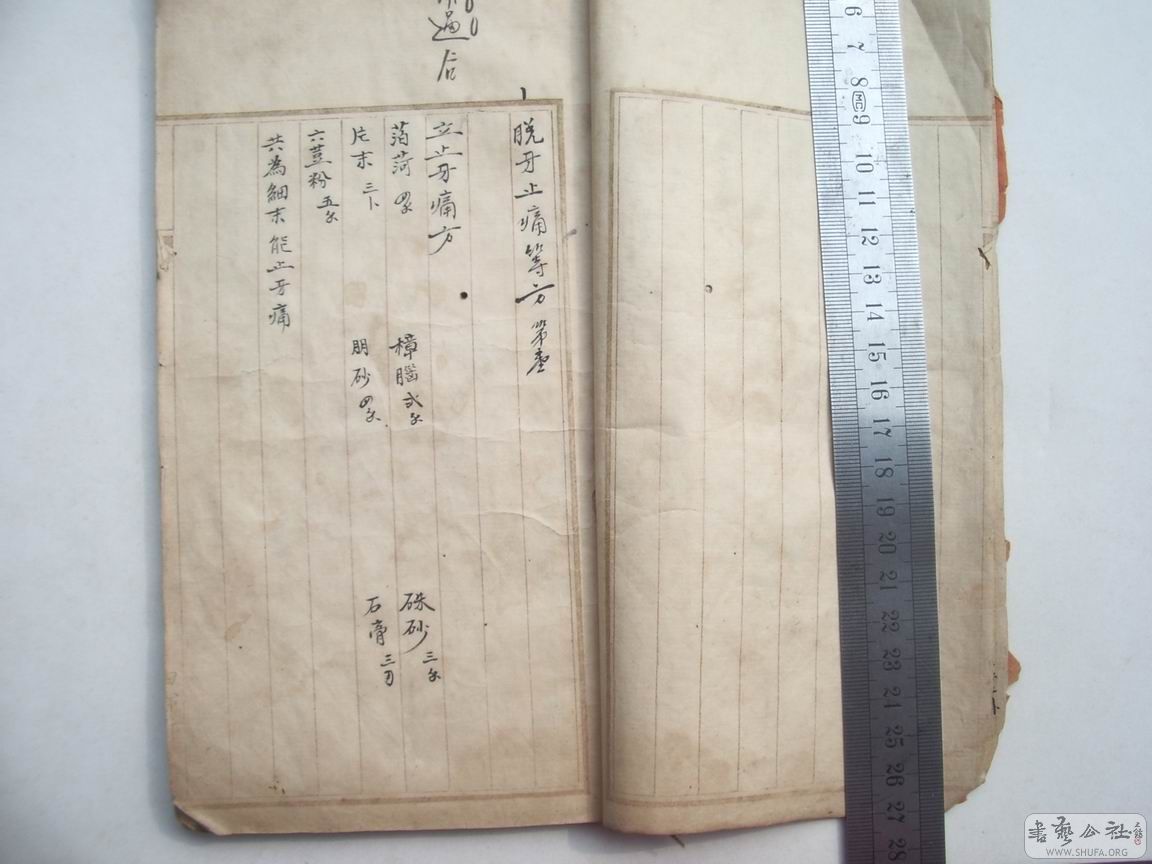 過后
脱牙止痛等方 第壹
立止牙痛方
菏 樟腦 弍 硃砂 三
片末 三卜 朋砂 石膏 三
六荳粉 五
共為細末能止牙痛
6 7 8 MC 9 10 11 12 13 14 15 16 17 18 19 20 21 22 23 24 25 26 27 28
書藝公社
WWW.SHUFA.ORG